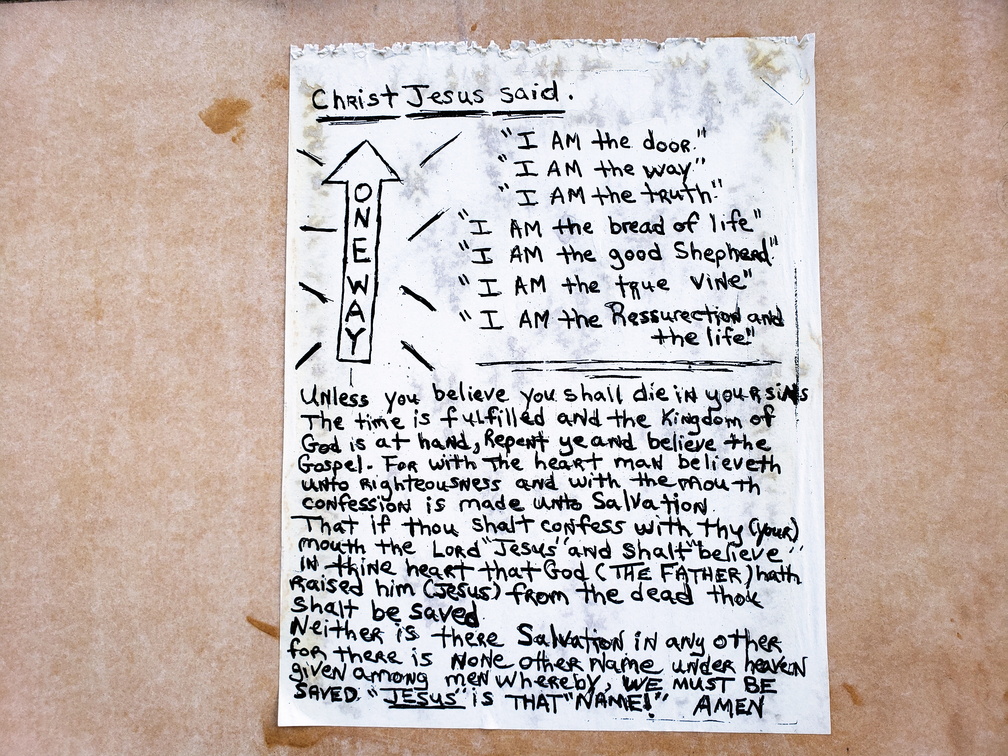 Christ Jesus said.
"I AM the door."
"I AM the way"
"I AM the truth."
"I AM the bread of life"
"I AM the good Shepherd."
"I AM the true vine"
"I AM the Ressurection and
the life."
ONE WAY
Unless you believe you shall die in your sins
The time is fulfilled and the Kingdom of
God is at hand, Repent ye and believe the
Gospel. For with the heart man believeth
unto righteousness and with the mouth
confession is made unto Salvation.
That if thou shalt confess with thy (your)
mouth the Lord "Jesus" and shalt "believe"
in thine heart that God (THE FATHER) hath
raised him (Jesus) from the dead thou
shalt be saved.
Neither is there Salvation in any other
for there is none other name under heaven
given among men whereby, WE MUST BE
SAVED. "JESUS" is THAT "NAME!" AMEN